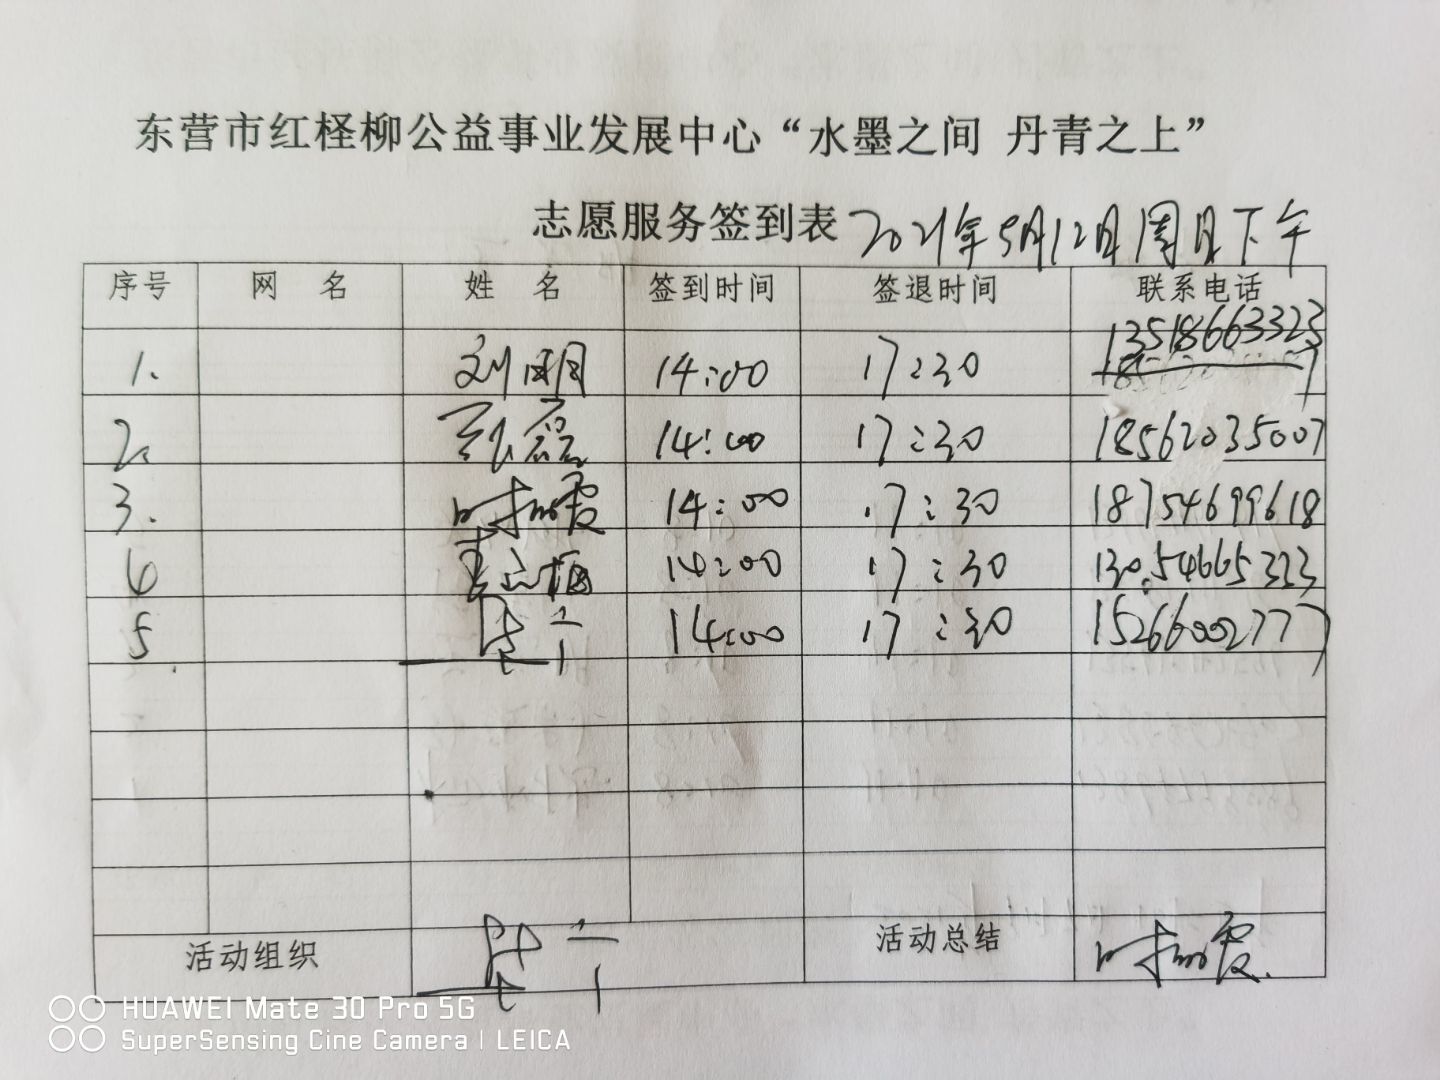 东营市红柽柳公益事业发展中心“水墨之间 丹青之上”
志愿服务签到表 2021年9月12日周日下午
序号 网 名 姓 名 签到时间 签退时间 联系电话
1. 刘明 14:00 17:30 13518663323
2. 14:00 17:30 18562035007
3. 14:00 17:30 18754699618
4 14:00 17:30
5 14:00 17:30 15266002777
活动组织 活动总结
HUAWEI Mate 30 Pro 5G
SuperSensing Cine Camera | LEICA